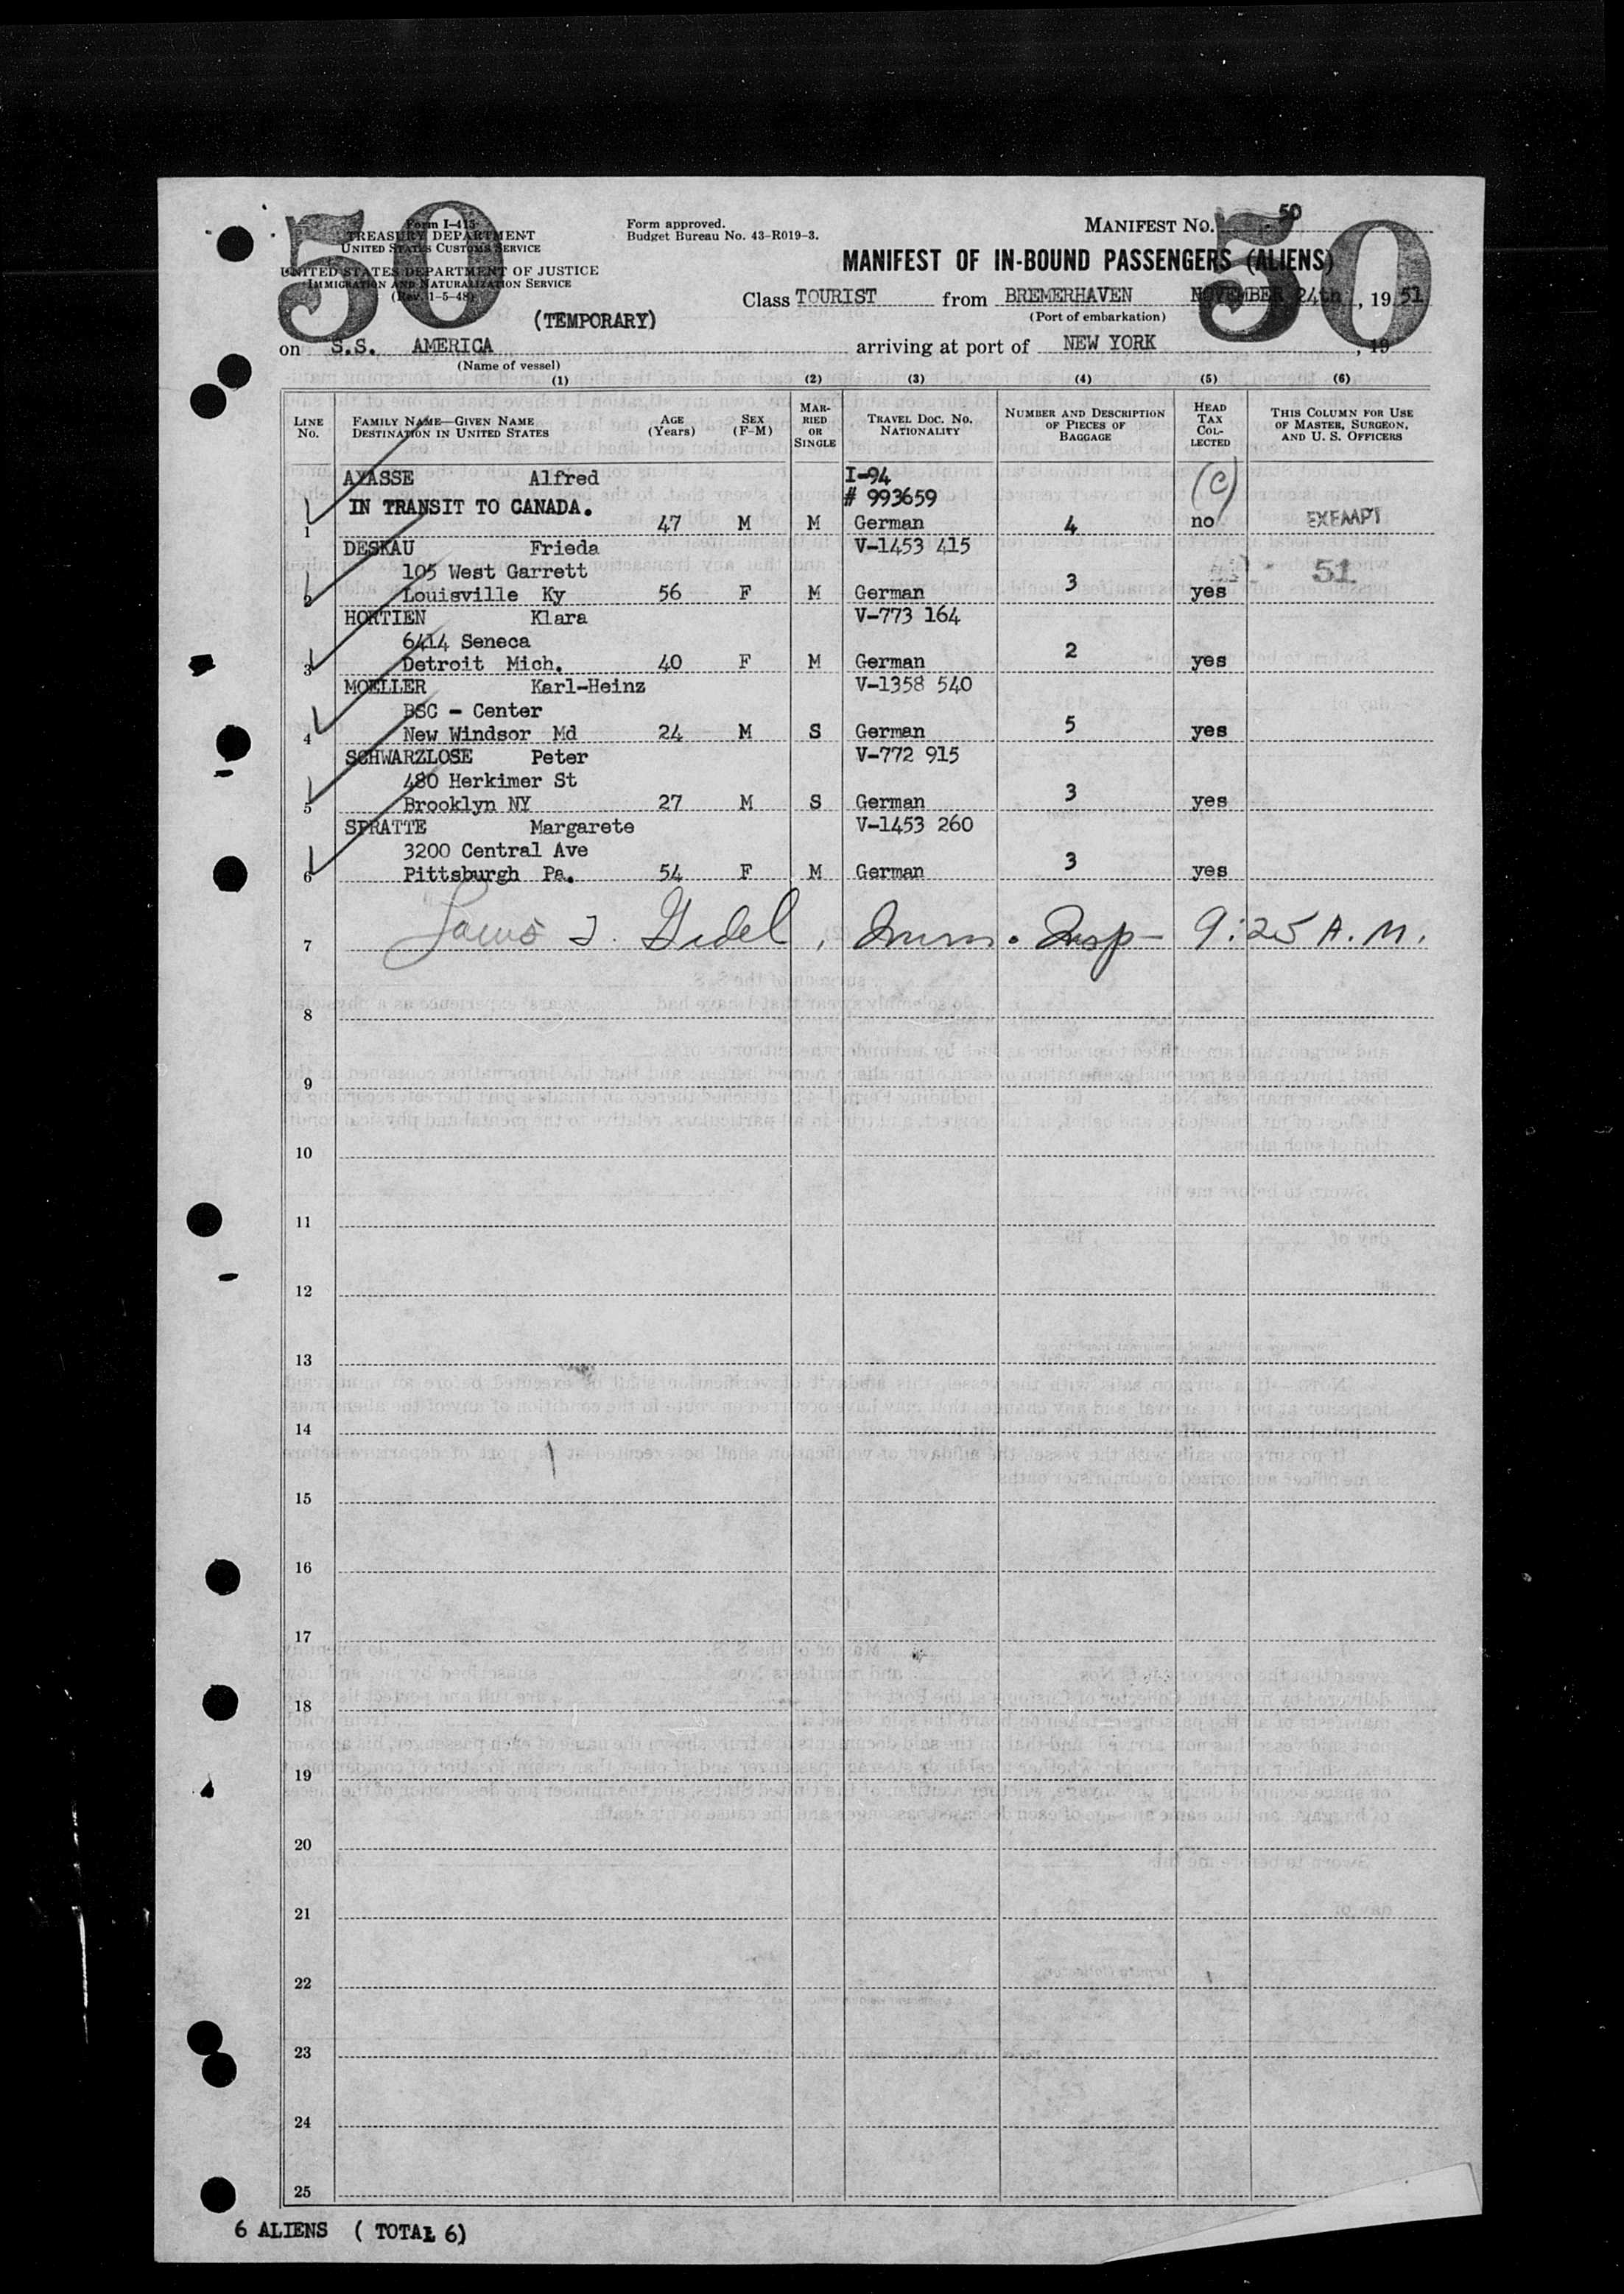 50
50
Form I-415
TREASURY DEPARTMENT
UNITED STATES CUSTOMS SERVICE
UNITED STATES DEPARTMENT OF JUSTICE
IMMIGRATION AND NATURALIZATION SERVICE
(Rev. 1-5-48)
(TEMPORARY)
Form approved.
Budget Bureau No. 43-R019-3.
MANIFEST NO. 50
MANIFEST OF IN-BOUND PASSENGERS (ALIENS)
Class TOURIST from BREMERHAVEN NOVEMBER 24th, 1951
(Port of embarkation)
on S.S. AMERICA arriving at port of NEW YORK, 19
(Name of vessel)
(1) (2) (3) (4) (5) (6)
LINE No. FAMILY NAME—GIVEN NAME DESTINATION IN UNITED STATES AGE (Years) SEX (F-M) MARRIED OR SINGLE TRAVEL DOC. NO. NATIONALITY NUMBER AND DESCRIPTION OF PIECES OF BAGGAGE HEAD TAX COLLECTED THIS COLUMN FOR USE OF MASTER, SURGEON, AND U. S. OFFICERS
AYASSE Alfred I-94
IN TRANSIT TO CANADA. # 993659 (C)
1 47 M M German 4 no EXEMPT
DESKAU Frieda V-1453 415
105 West Garrett 51
2 Louisville Ky 56 F M German 3 yes
HORTIEN Klara V-773 164
6414 Seneca
3 Detroit Mich. 40 F M German 2 yes
MOELLER Karl-Heinz V-1358 540
BSC - Center
4 New Windsor Md 24 M S German 5 yes
SCHWARZLOSE Peter V-772 915
480 Herkimer St
5 Brooklyn NY 27 M S German 3 yes
SPRATTE Margarete V-1453 260
3200 Central Ave
6 Pittsburgh Pa. 54 F M German 3 yes
7 Imm. Insp - 9:25 A.M.
8
9
10
11
12
13
14
15
16
17
18
19
20
21
22
23
24
25
6 ALIENS ( TOTAL 6)